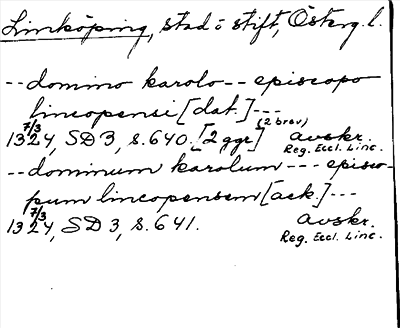 Linköping, stad o stift, Österg. l.
-- domino karolo -- episcopo
lincopensi [dat.] ---
1324, 7/3 SD 3, s. 640. [2 ggr] (2 brev) avskr.
Reg. Eccl. Linc.
-- dominum karolum --- episco-
pum lincopensem [ack.] ---
1324, 7/3 SD 3, s. 641. avskr.
Reg. Eccl. Linc.